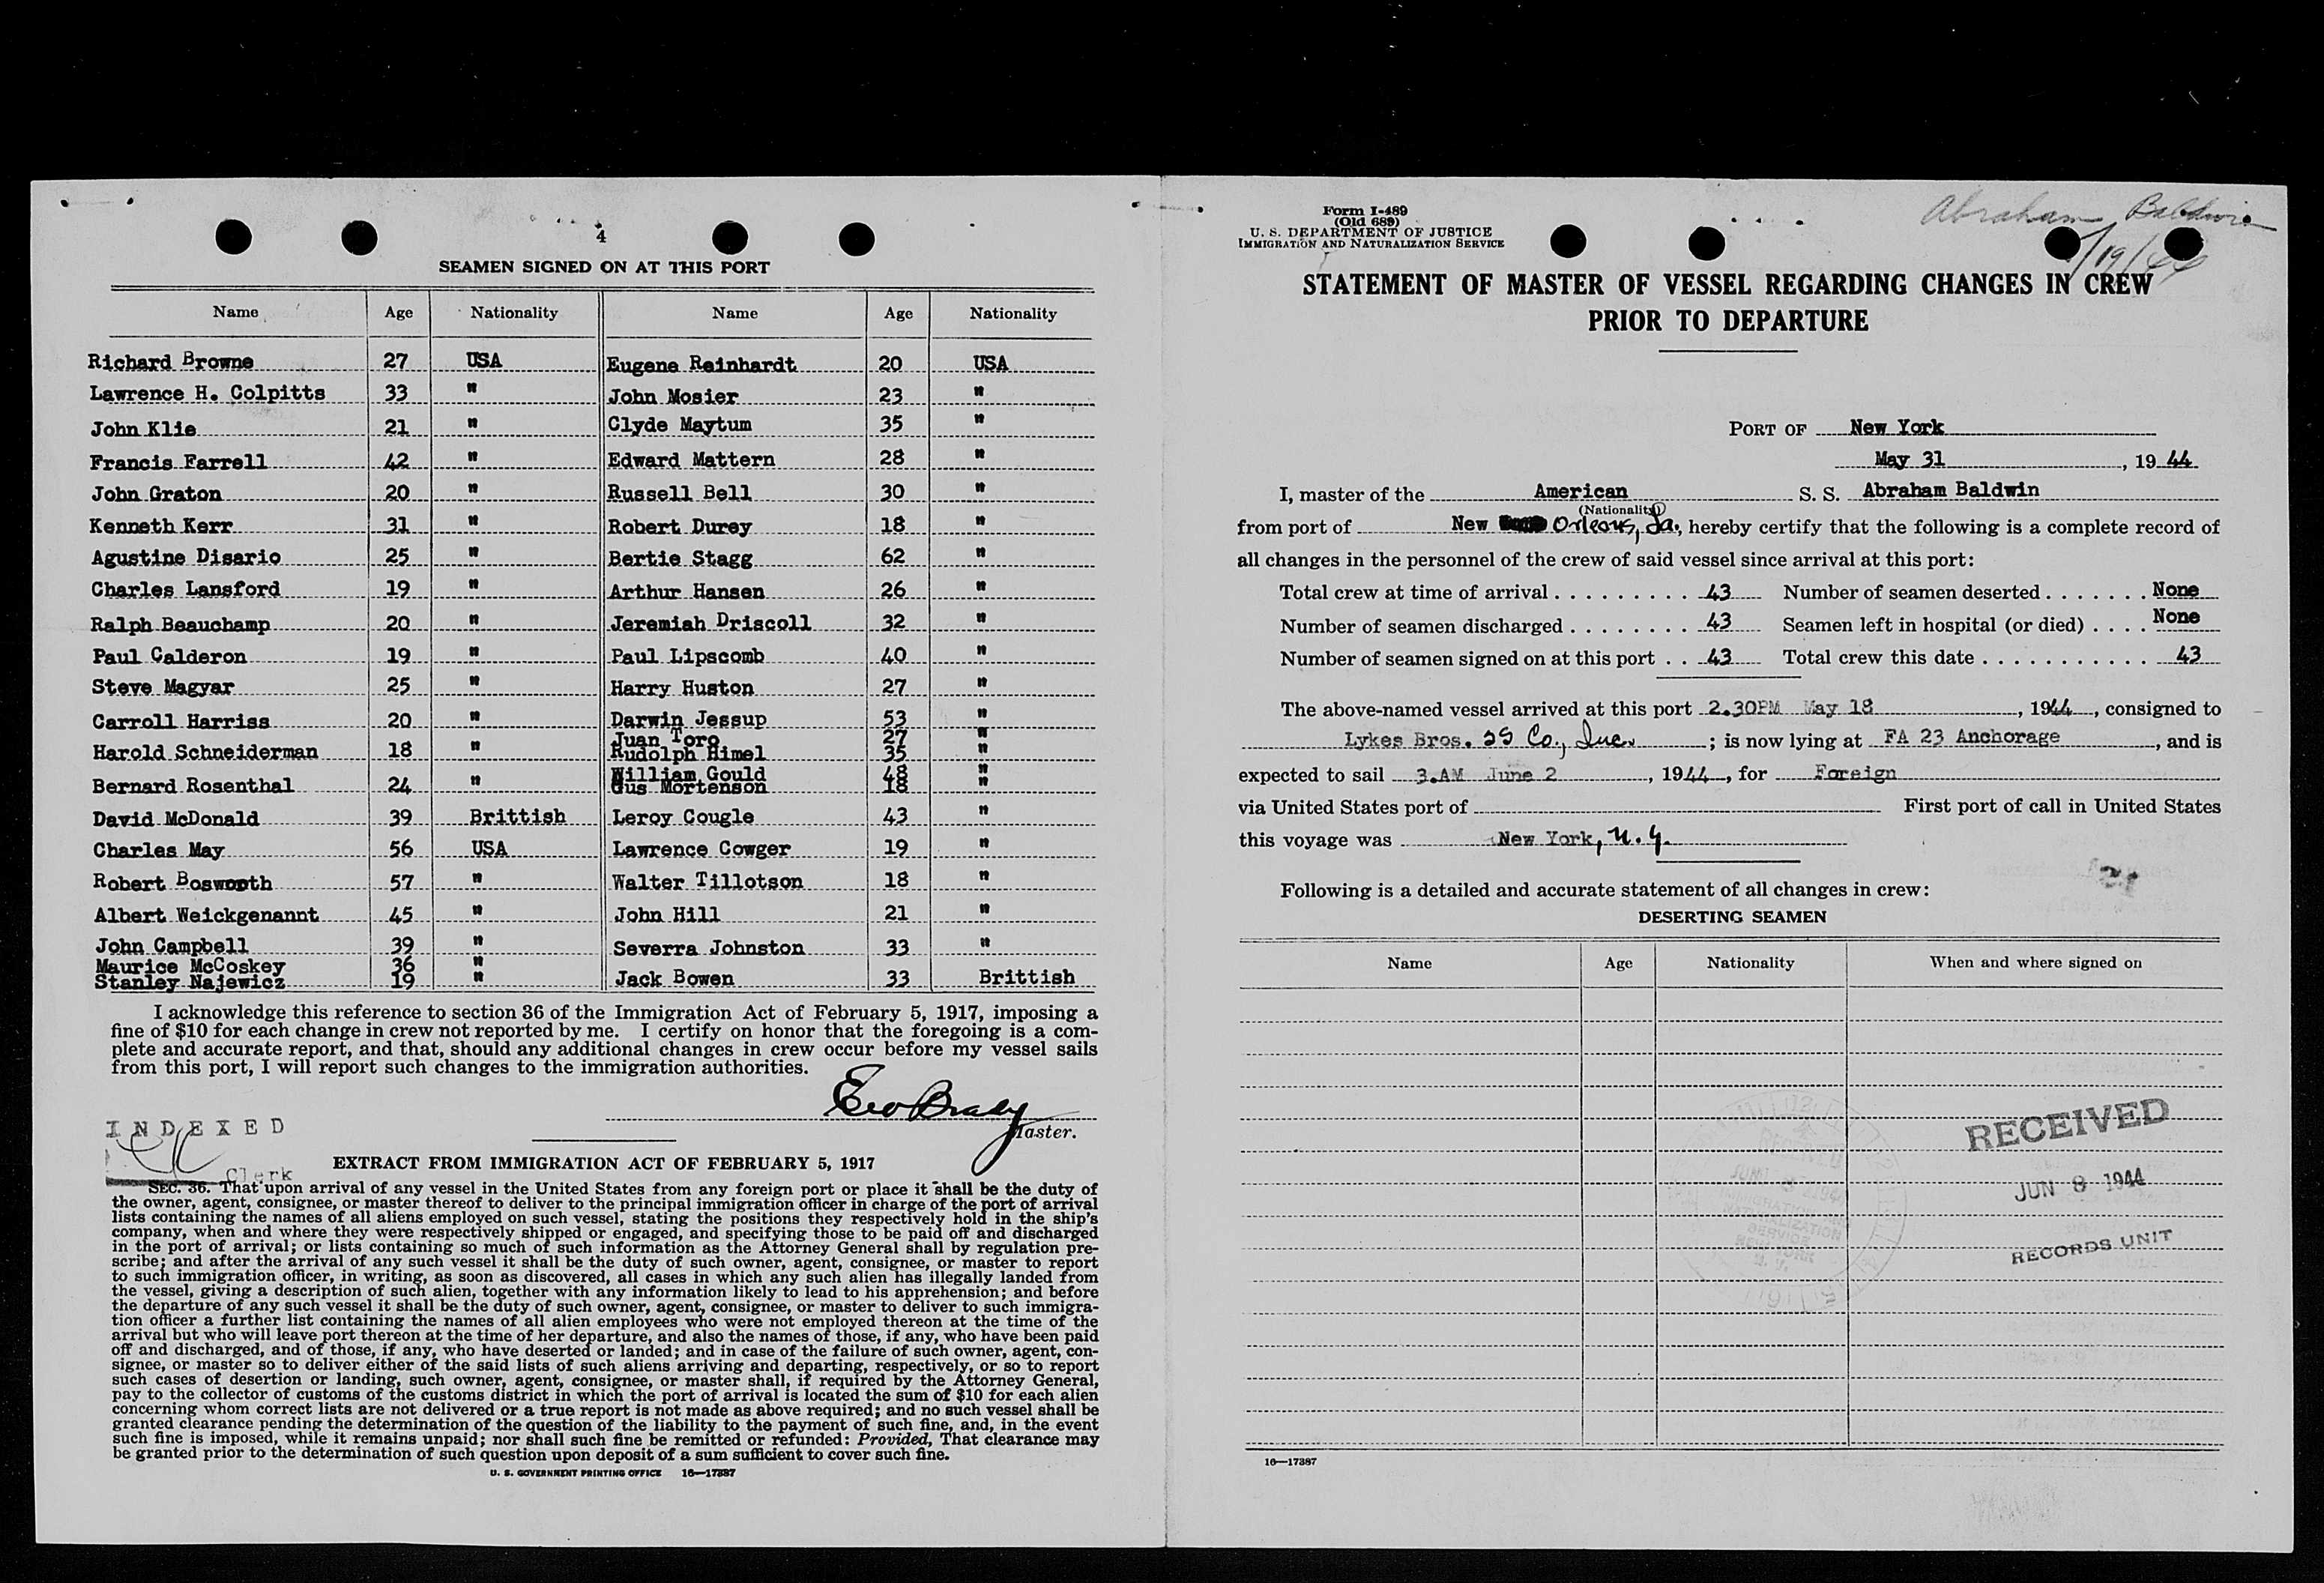 4
SEAMEN SIGNED ON AT THIS PORT
Name Age Nationality Name Age Nationality
Richard Browne 27 USA Eugene Reinhardt 20 USA
Lawrence H. Colpitts 33 " John Mosier 23 "
John Klie 21 " Clyde Maytum 35 "
Francis Farrell 42 " Edward Mattern 28 "
John Graton 20 " Russell Bell 30 "
Kenneth Kerr 31 " Robert Durey 18 "
Agustine Disario 25 " Bertie Stagg 62 "
Charles Lansford 19 " Arthur Hansen 26 "
Ralph Beauchamp 20 " Jeremiah Driscoll 32 "
Paul Calderon 19 " Paul Lipscomb 40 "
Steve Magyar 25 " Harry Huston 27 "
Carroll Harriss 20 " Darwin Jessup 53 "
Juan Toro 27 "
Harold Schneiderman 18 " Rudolph Himel 35 "
William Gould 48 "
Bernard Rosenthal 24 " Gus Mortenson 18 "
David McDonald 39 Brittish Leroy Cougle 43 "
Charles May 56 USA Lawrence Cowger 19 "
Robert Bosworth 57 " Walter Tillotson 18 "
Albert Weickgenannt 45 " John Hill 21 "
John Campbell 39 " Severra Johnston 33 "
Maurice McCoskey 36 "
Stanley Najewicz 19 " Jack Bowen 33 Brittish
I acknowledge this reference to section 36 of the Immigration Act of February 5, 1917, imposing a
fine of $10 for each change in crew not reported by me. I certify on honor that the foregoing is a com-
plete and accurate report, and that, should any additional changes in crew occur before my vessel sails
from this port, I will report such changes to the immigration authorities.
Geo Brady
Master.
INDEXED
Clerk
EXTRACT FROM IMMIGRATION ACT OF FEBRUARY 5, 1917
SEC. 36. That upon arrival of any vessel in the United States from any foreign port or place it shall be the duty of
the owner, agent, consignee, or master thereof to deliver to the principal immigration officer in charge of the port of arrival
lists containing the names of all aliens employed on such vessel, stating the positions they respectively hold in the ship's
company, when and where they were respectively shipped or engaged, and specifying those to be paid off and discharged
in the port of arrival; or lists containing so much of such information as the Attorney General shall by regulation pre-
scribe; and after the arrival of any such vessel it shall be the duty of such owner, agent, consignee, or master to report
to such immigration officer, in writing, as soon as discovered, all cases in which any such alien has illegally landed from
the vessel, giving a description of such alien, together with any information likely to lead to his apprehension; and before
the departure of any such vessel it shall be the duty of such owner, agent, consignee, or master to deliver to such immigra-
tion officer a further list containing the names of all alien employees who were not employed thereon at the time of the
arrival but who will leave port thereon at the time of her departure, and also the names of those, if any, who have been paid
off and discharged, and of those, if any, who have deserted or landed; and in case of the failure of such owner, agent, con-
signee, or master so to deliver either of the said lists of such aliens arriving and departing, respectively, or so to report
such cases of desertion or landing, such owner, agent, consignee, or master shall, if required by the Attorney General,
pay to the collector of customs of the customs district in which the port of arrival is located the sum of $10 for each alien
concerning whom correct lists are not delivered or a true report is not made as above required; and no such vessel shall be
granted clearance pending the determination of the question of the liability to the payment of such fine, and, in the event
such fine is imposed, while it remains unpaid; nor shall such fine be remitted or refunded: Provided, That clearance may
be granted prior to the determination of such question upon deposit of a sum sufficient to cover such fine.
U. S. GOVERNMENT PRINTING OFFICE 16—17387
Form I-489
(Old 689)
U. S. DEPARTMENT OF JUSTICE
IMMIGRATION AND NATURALIZATION SERVICE
Abraham Baldwin
/19/44
STATEMENT OF MASTER OF VESSEL REGARDING CHANGES IN CREW
PRIOR TO DEPARTURE
PORT OF New York
May 31, 1944
I, master of the American S. S. Abraham Baldwin
(Nationality)
from port of New Orleans, La., hereby certify that the following is a complete record of
all changes in the personnel of the crew of said vessel since arrival at this port:
Total crew at time of arrival . . . . . . . . . . 43 Number of seamen deserted . . . . . . . None
Number of seamen discharged . . . . . . . . 43 Seamen left in hospital (or died) . . . . None
Number of seamen signed on at this port . . 43 Total crew this date . . . . . . . . . . . 43
The above-named vessel arrived at this port 2.30PM May 18, 1944, consigned to
Lykes Bros. SS Co., Inc. ; is now lying at FA 23 Anchorage, and is
expected to sail 3.AM June 2, 1944, for Foreign
via United States port of First port of call in United States
this voyage was New York, N.Y.
Following is a detailed and accurate statement of all changes in crew:
DESERTING SEAMEN
Name Age Nationality When and where signed on
RECEIVED
JUN 8 1944
RECORDS UNIT
16—17387